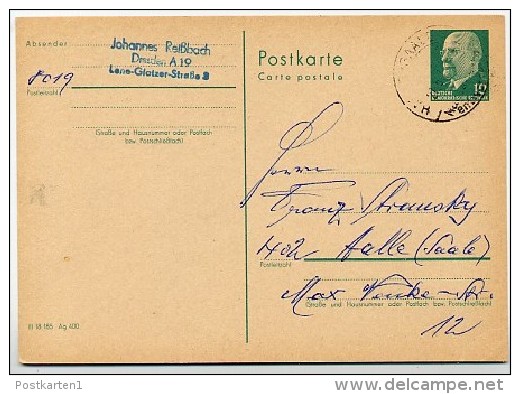 Absender
Johannes Reißbach
Dresden A 19
Lene-Glatzer-Straße
8019
Postleitzahl
(Straße und Hausnummer oder Postfach
bzw. Postschließfach)
III 18 185 Ag 400
Postkarte
Carte postale
DEUTSCHE
DEMOKRATISCHE REPUBLIK
10
Herrn
Franz Stransky
402 Halle (Saale)
Postleitzahl
Max
(Straße und Hausnummer oder Postfach bzw. Postschließfach)
12
Postkarten1
delcampe.net